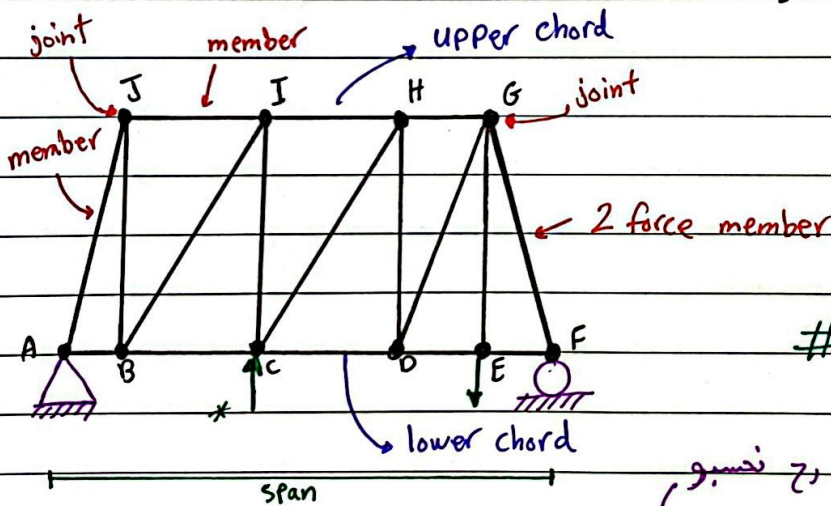 joint
member
upper chord
J
I
H
G
joint
member
2 force member
A
B
C
D
E
F
#
*
lower chord
span